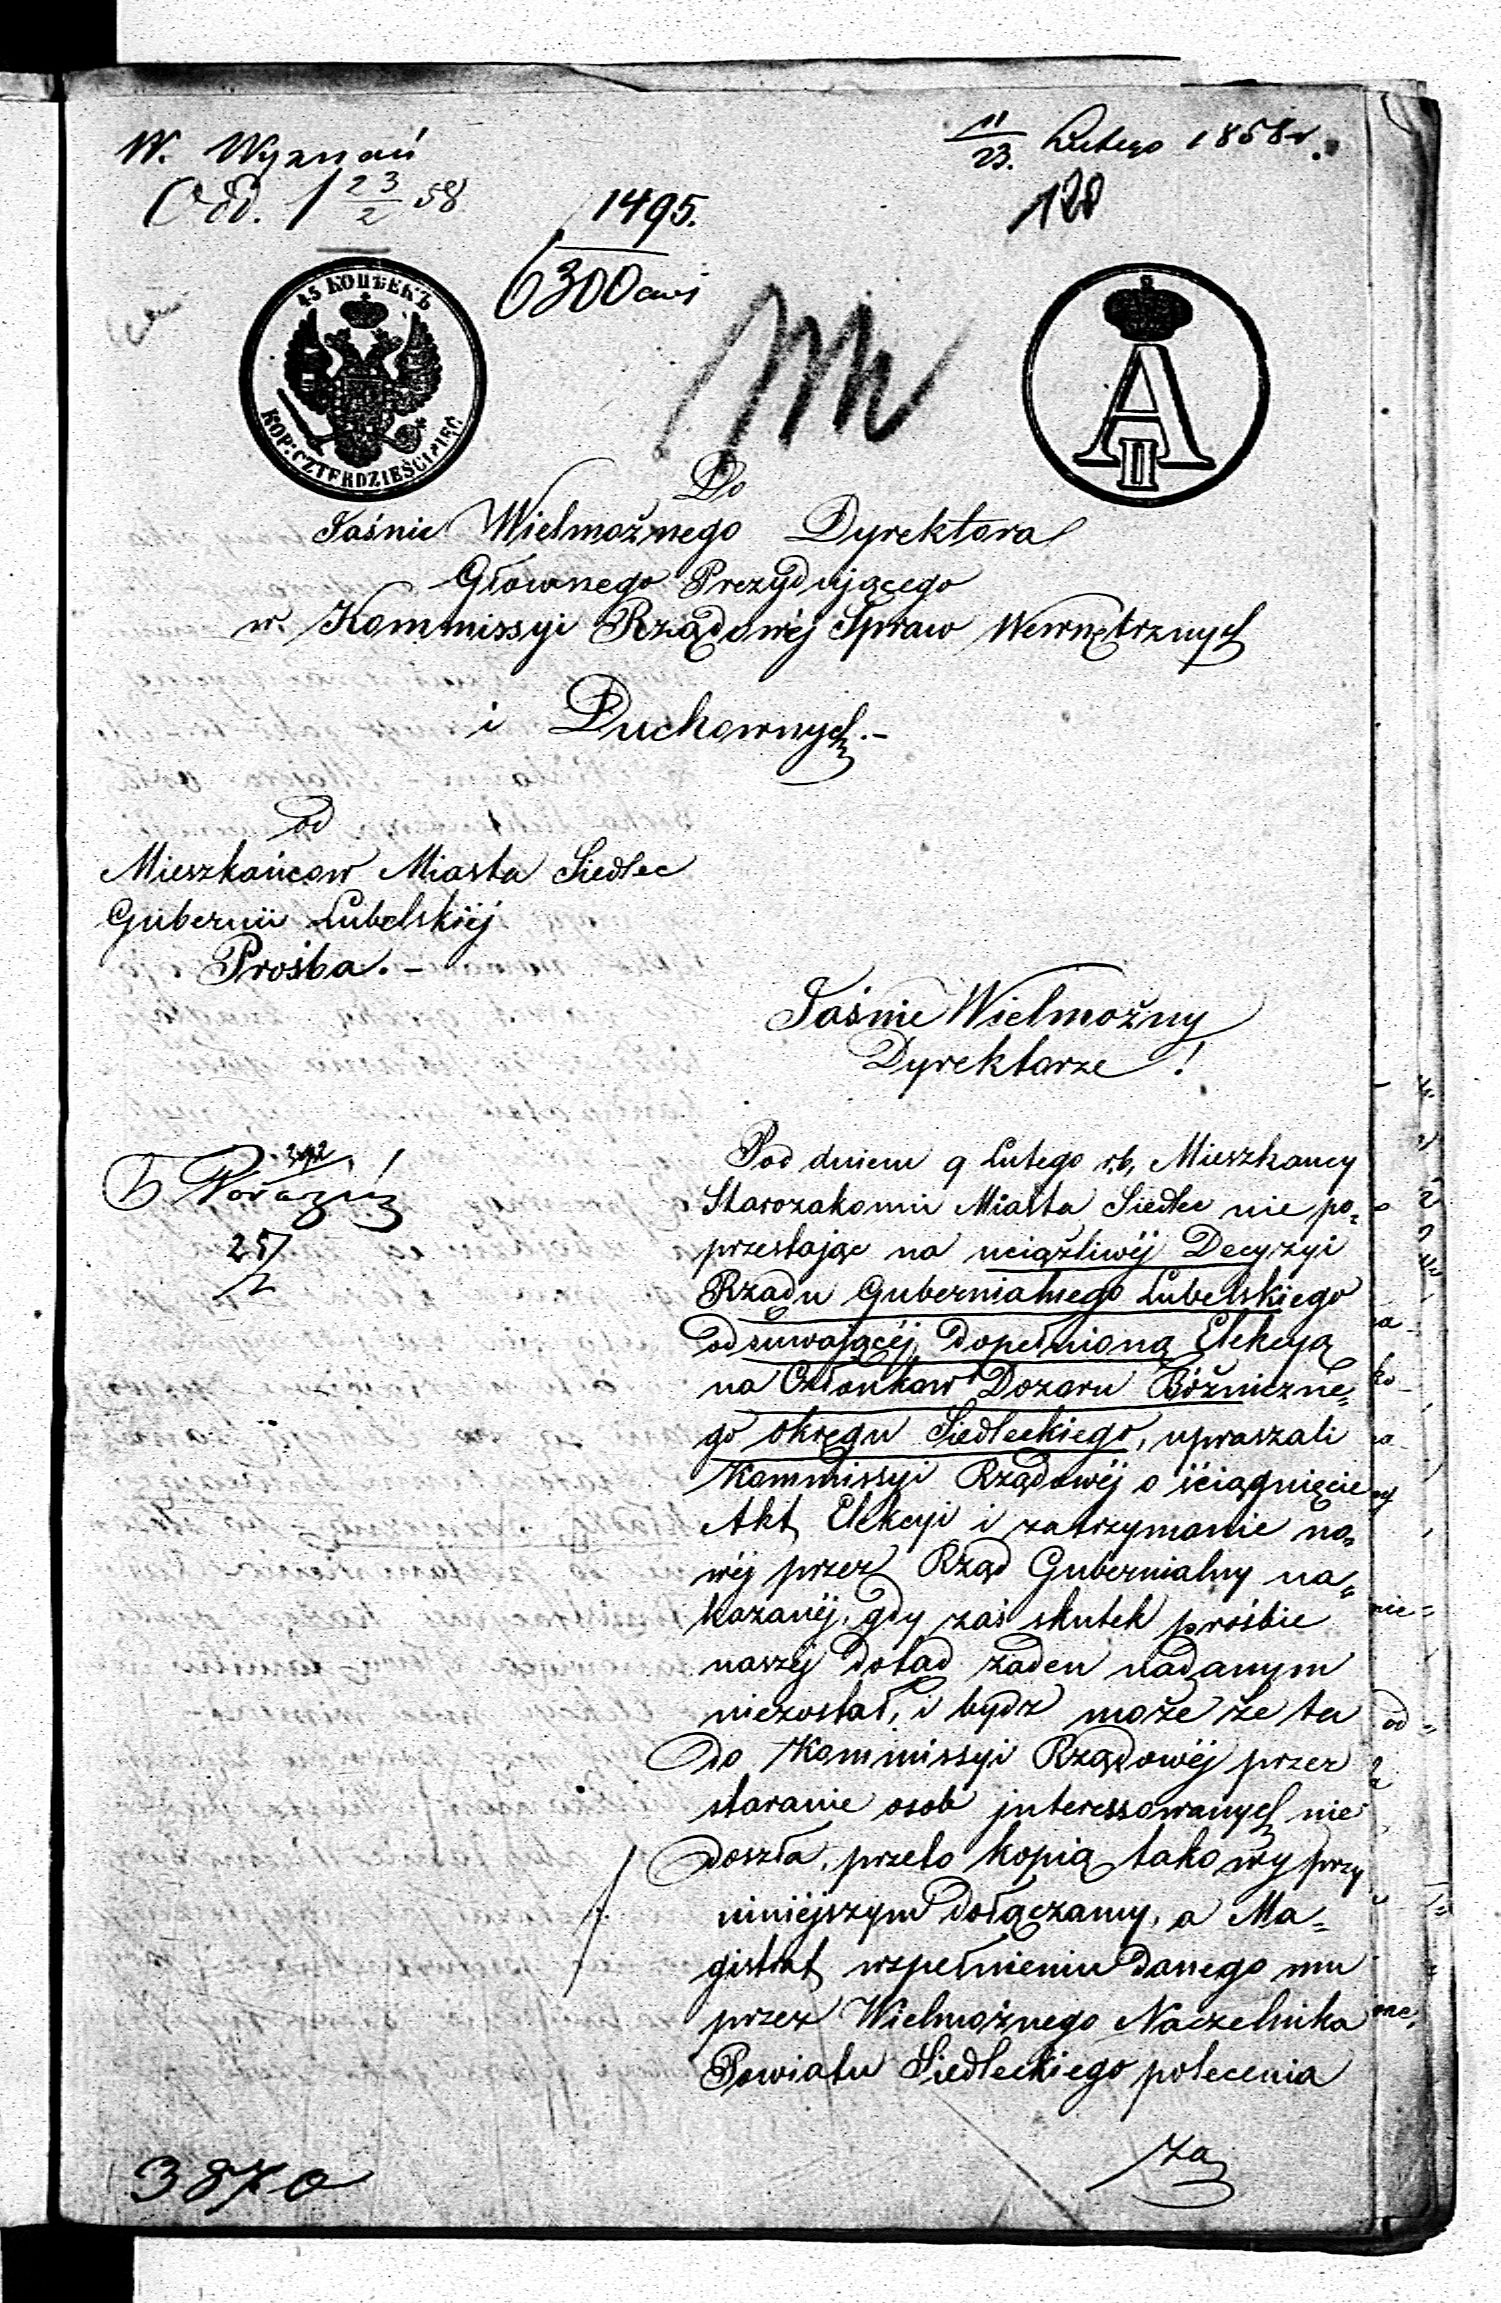 W. Wyznań
11/23. Lutego 1858 r.
Odd. 1 23/2 58
128
1495.
6300
45 КОПѢЕКЪ
KOP: CZTERDZIEŚCI PIĘĆ
A II
Do
Jaśnie Wielmożnego Dyrektora
Głównego Prezydującego
w. Kommissyi Rządowéj Spraw Wewnętrznych
i Duchownych.-
od
Mieszkańcow Miasta Siedlec
Gubernii Lubelskiéj
Prośba.-
Jaśnie Wielmożny
Dyrektorze!
392
25/2
Pod dniem 9 Lutego r.b, Mieszkancy
Starozakonni Miasta Siedlec nie po=
przestając na uciążliwéj Decyzyi
Rządu Gubernialnego Lubelskiego
odsuwającéj, dopełnioną Elekcyą
na Członkow Dozoru Bóżniczne=
go okręgu Siedleckiego, upraszali
Kommissyi Rządowéj o ściągnięcie
Akt Elekcyi i zatrzymanie no=
wéj przez Rząd Gubernialny na=
kazanéj, gdy zaś skutek prośbie
naszéj dotąd żaden nadanym
niezostał, i bydz może że ta
do Kommissyi Rządowéj przez
staranie osob interessowanych nie
doszła, przeto kopią takowy przy
niniéjszym dołączamy, a Ma=
gistrat wspełnieniu danego mu
przez Wielmożnego Naczelnika
Powiatu Siedleckiego polecenia
za
3870